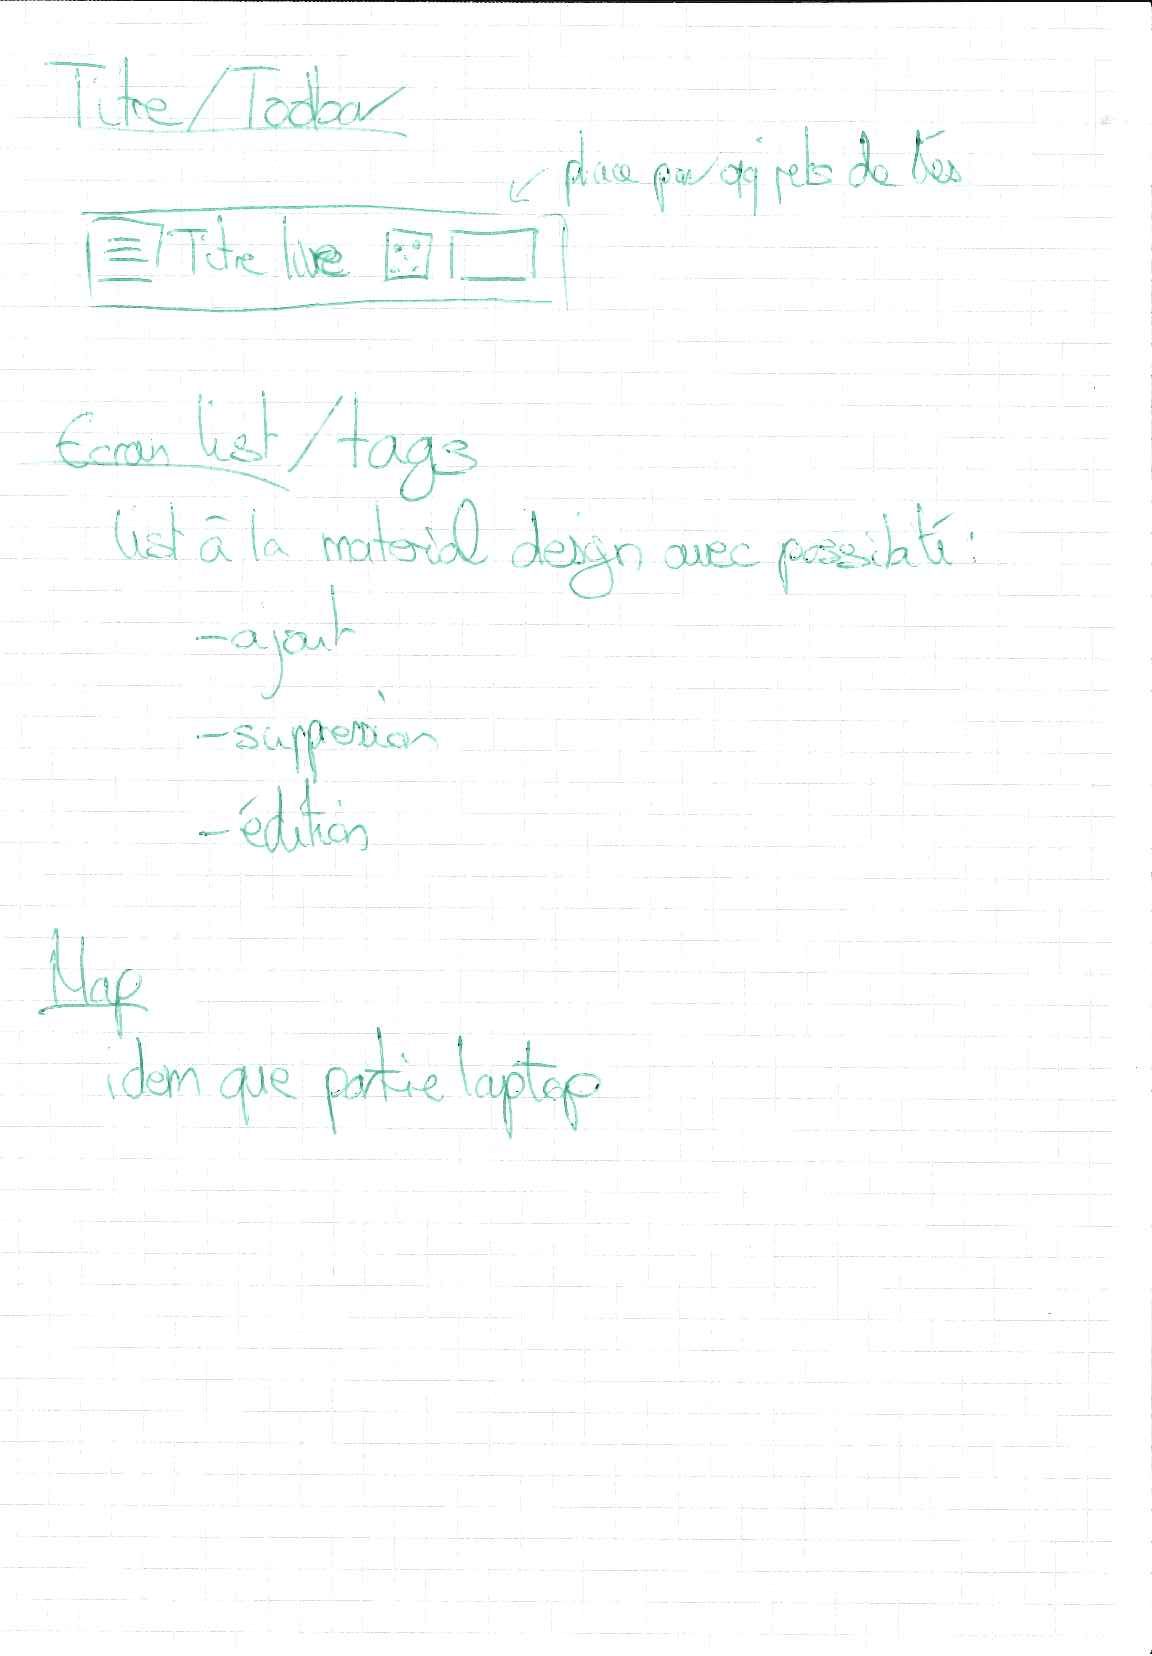 Titre/Toolbar
place pour qq jets de dés
Titre livre
Ecran list/tags
list à la material design avec possibilité :
- ajout
- suppression
- édition
Map
idem que partie laptop